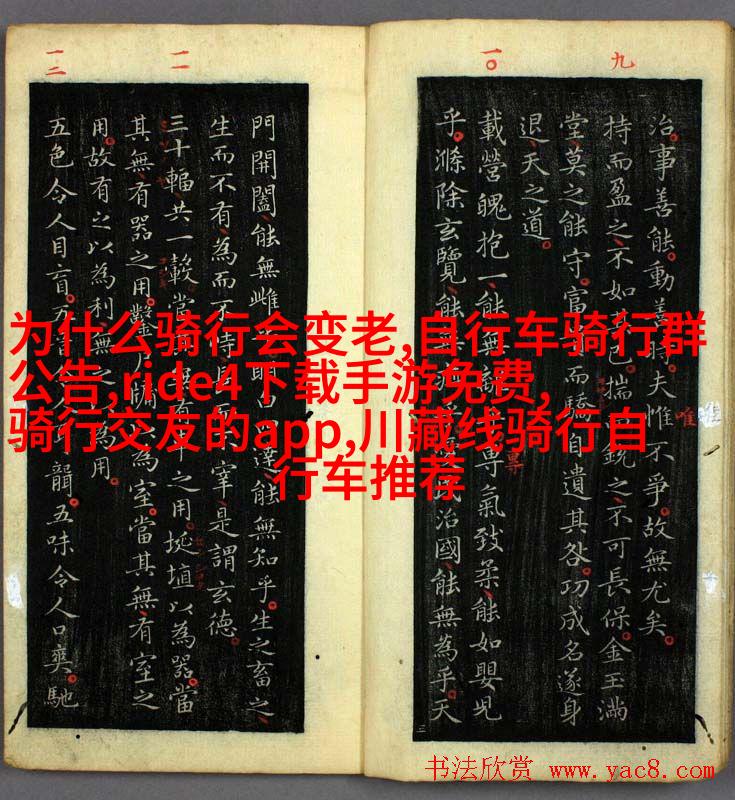 为什么骑行会变老,自行车骑行群
公告,ride4下载手游免费,
骑行交友的app,川藏线骑行自
行车推荐
九
一〇
一一
一二
治事善能動善時夫惟不爭故無尤矣
持而盈之不如已揣銳之不可長保金玉滿
堂莫之能守富而驕自遺其咎功成名遂身
退天之道
載營魄抱一能無專氣致柔能如嬰兒
乎滌除玄覽能無治國能無為乎天
門開闔能無雌明達能無知乎生之畜之
生而不有為而不恃宰是謂玄德
三十輻共一轂當之用埏埴以為器當
其無有器之用鑿為室當其無有室之
用故有之以為利無之為用
五色令人目盲五聾五味令人口爽馳
唯
書法欣赏 www.yac8.com